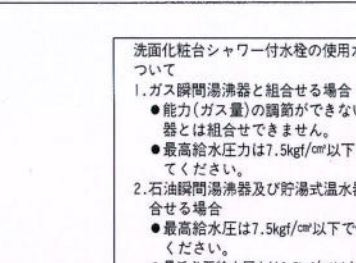 洗面化粧台シャワー付水栓の使用
ついて
1.ガス瞬間湯沸器と組合せる場合
●能力(ガス量)の調節ができない
器とは組合せできません。
●最高給水圧力は7.5kgf/cm²以下
てください。
2.石油瞬間湯沸器及び貯湯式温水器
合せる場合
●最高給水圧は7.5kgf/cm²以下で
ください。